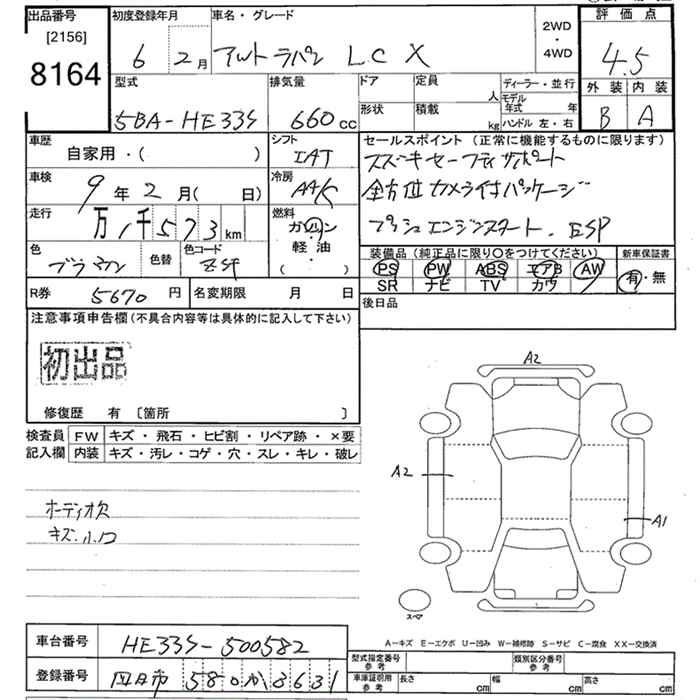 出品番号
[2156]
8164
初度登録年月
6 2月
車名・グレード
アルト ラパン LC X
2WD
・
4WD
評価点
4.5
外装 内装
B A
型式
5BA-HE33S
排気量
660cc
ドア
形状
定員
人
積載
kg
ディーラー・並行
モデル年式 年
ハンドル 左・右
車歴
自家用・( )
シフト
IAT
車検
9年2月( 日)
冷房
AAC
走行
万1千573km
燃料
ガソリン
軽油・
( )
色
色替
色コード
ZSF
R券
5670円
名変期限 月 日
セールスポイント (正常に機能するものに限ります)
スズキセーフティサポート
全方位カメラ付パッケージ
プッシュエンジンスタート. ESP
装備品 (純正品に限り○をつけてください)
新車保証書
PS PW ABS エアB AW
SR ナビ TV カワ
有・無
後日品
注意事項申告欄 (不具合内容等は具体的に記入して下さい)
初出品
修復歴 有 [箇所 ]
検査員
記入欄
FW キズ・飛石・ヒビ割・リペア跡・×要
内装 キズ・汚レ・コゲ・穴・スレ・キレ・破レ
キズ.
A2
A2
A1
スペア
A-キズ E-エクボ U-凹み W-補修跡 S-サビ C-腐食 XX-交換済
車台番号
HE33S-500582
登録番号
四日市 580か3631
型式指定番号
参考
類別区分番号
参考
車庫証明用
参考
長さ cm
幅 cm
高さ cm